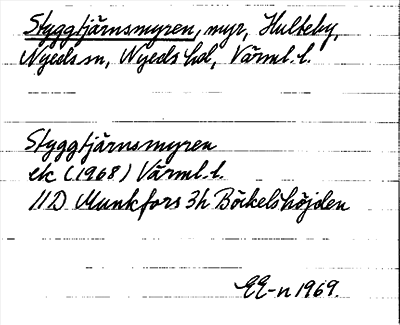 Styggtjärnsmyren, myr, Hulteby,
Nyeds sn, Nyeds hd, Värml. l.
Styggtjärnsmyren
ek (1968) Värml. l.
11D Munkfors 3h Böckelshöjden
EE-n 1969.